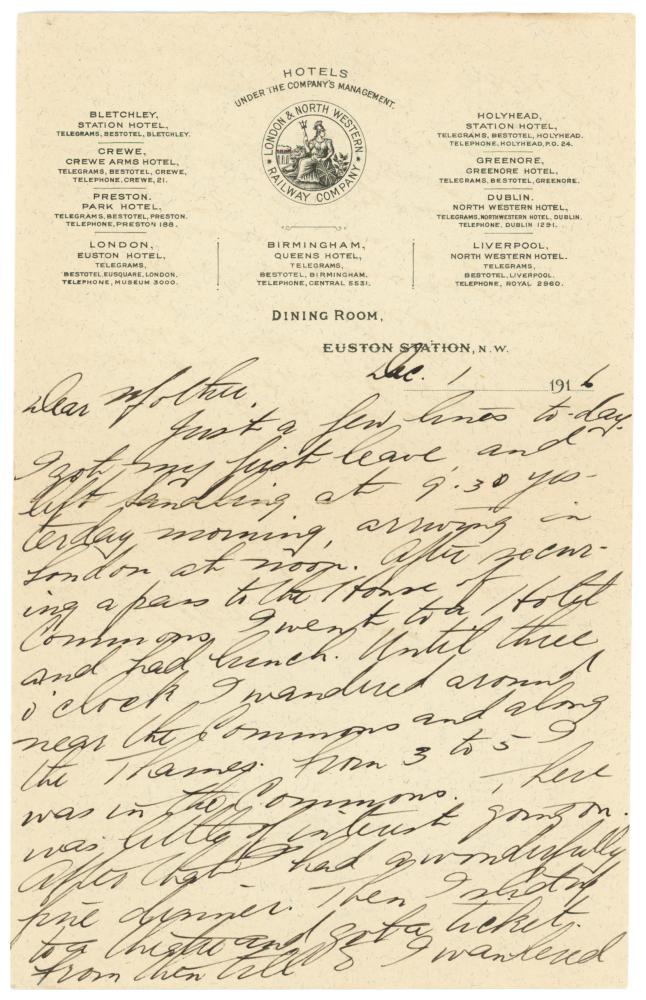 HOTELS
UNDER THE COMPANY'S MANAGEMENT.
LONDON & NORTH WESTERN
RAILWAY COMPANY
BLETCHLEY,
STATION HOTEL,
TELEGRAMS, BESTOTEL, BLETCHLEY.
CREWE,
CREWE ARMS HOTEL,
TELEGRAMS, BESTOTEL, CREWE,
TELEPHONE, CREWE, 21.
PRESTON.
PARK HOTEL,
TELEGRAMS, BESTOTEL, PRESTON.
TELEPHONE, PRESTON 188.
LONDON,
EUSTON HOTEL,
TELEGRAMS,
BESTOTEL, EUSQUARE, LONDON.
TELEPHONE, MUSEUM 3000.
BIRMINGHAM,
QUEENS HOTEL,
TELEGRAMS,
BESTOTEL, BIRMINGHAM.
TELEPHONE, CENTRAL 5531.
HOLYHEAD,
STATION HOTEL,
TELEGRAMS, BESTOTEL, HOLYHEAD.
TELEPHONE, HOLYHEAD, P.O. 24.
GREENORE,
GREENORE HOTEL,
TELEGRAMS, BESTOTEL, GREENORE.
DUBLIN.
NORTH WESTERN HOTEL,
TELEGRAMS, NORTHWESTERN HOTEL, DUBLIN.
TELEPHONE, DUBLIN 1291.
LIVERPOOL,
NORTH WESTERN HOTEL.
TELEGRAMS,
BESTOTEL, LIVERPOOL.
TELEPHONE, ROYAL 2960.
DINING ROOM,
EUSTON STATION, N.W.
Dec. 1 1916
Dear Mother.
Just a few lines to-day.
I got my first leave, and
left Sandling at 9.30 yes-
terday morning, arriving in
London at noon. After secur-
ing a pass to the House of
Commons, I went to a Hotel
and had lunch. Until three
o'clock I wandered around
near the Commons and along
the Thames. From 3 to 5 I
was in the Commons. There
was little of interest going on.
After that I had a wonderfully
fine dinner. Then I
to a theatre and got a ticket.
From then till 8 I wandered